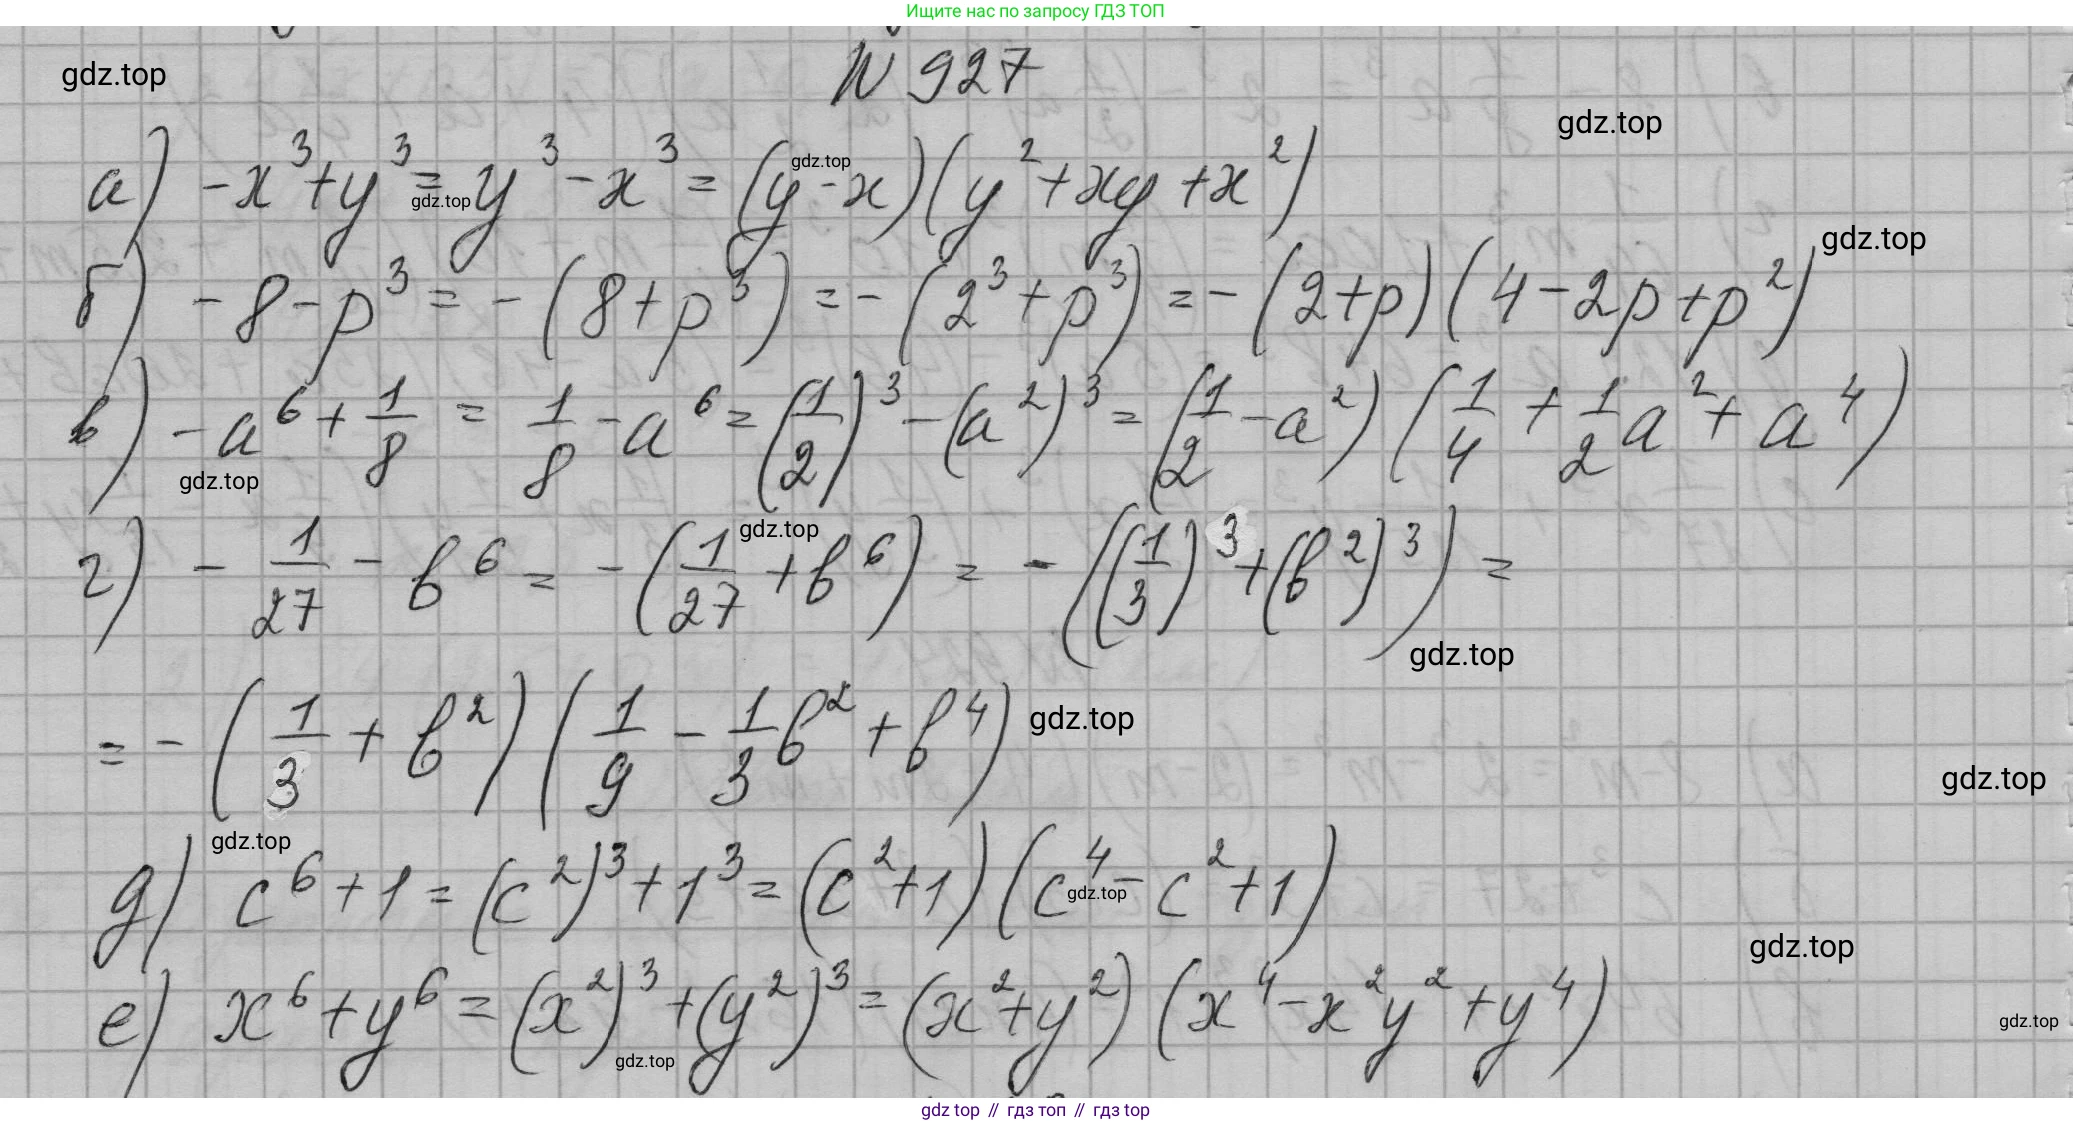 Ищите нас по запросу ГДЗ ТОП
N 927
gdz.top
gdz.top
а) -x³+y³ = y³-x³ = (y-x)(y²+xy+x²)
gdz.top
gdz.top
gdz.top
б) -8-p³ = -(8+p³) = -(2³+p³) = -(2+p)(4-2p+p²)
в) -a⁶+1/8 = 1/8-a⁶ = (1/2)³-(a²)³ = (1/2-a²)(1/4+1/2a²+a⁴)
gdz.top
gdz.top
г) -1/27-в⁶ = -(1/27+в⁶) = -((1/3)³+(в²)³) =
gdz.top
= -(1/3+в²)(1/9-1/3в²+в⁴)
gdz.top
gdz.top
gdz.top
д) c⁶+1 = (c²)³+1³ = (c²+1)(c⁴-c²+1)
gdz.top
gdz.top
е) x⁶+y⁶ = (x²)³+(y²)³ = (x²+y²)(x⁴-x²y²+y⁴)
gdz.top
gdz.top
gdz top // гдз топ // гдз top